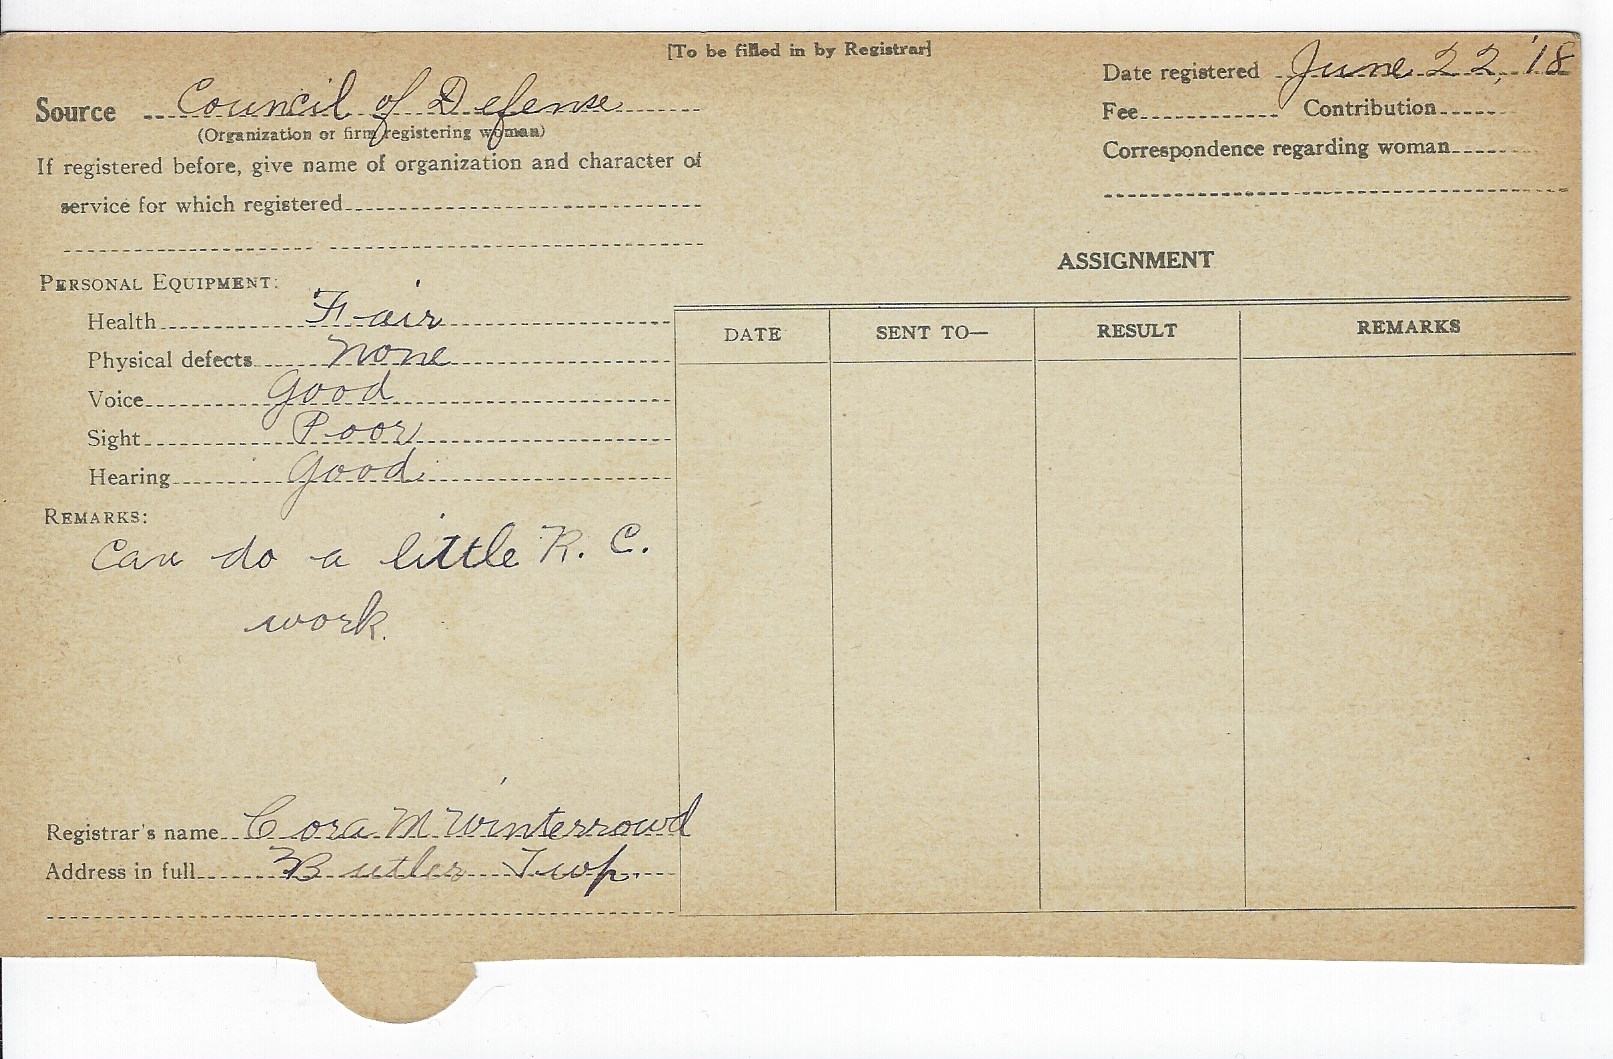 [To be filled in by Registrar]
Source Council of Defense
(Organization or firm registering woman)
If registered before, give name of organization and character of
service for which registered
Date registered June 22, '18
Fee Contribution
Correspondence regarding woman
PERSONAL EQUIPMENT:
Health Fair
Physical defects none
Voice Good
Sight Poor
Hearing Good
REMARKS:
Can do a little R. C.
work.
Registrar's name Cora M Winterrowd
Address in full Butler Twp.
ASSIGNMENT
DATE SENT TO— RESULT REMARKS